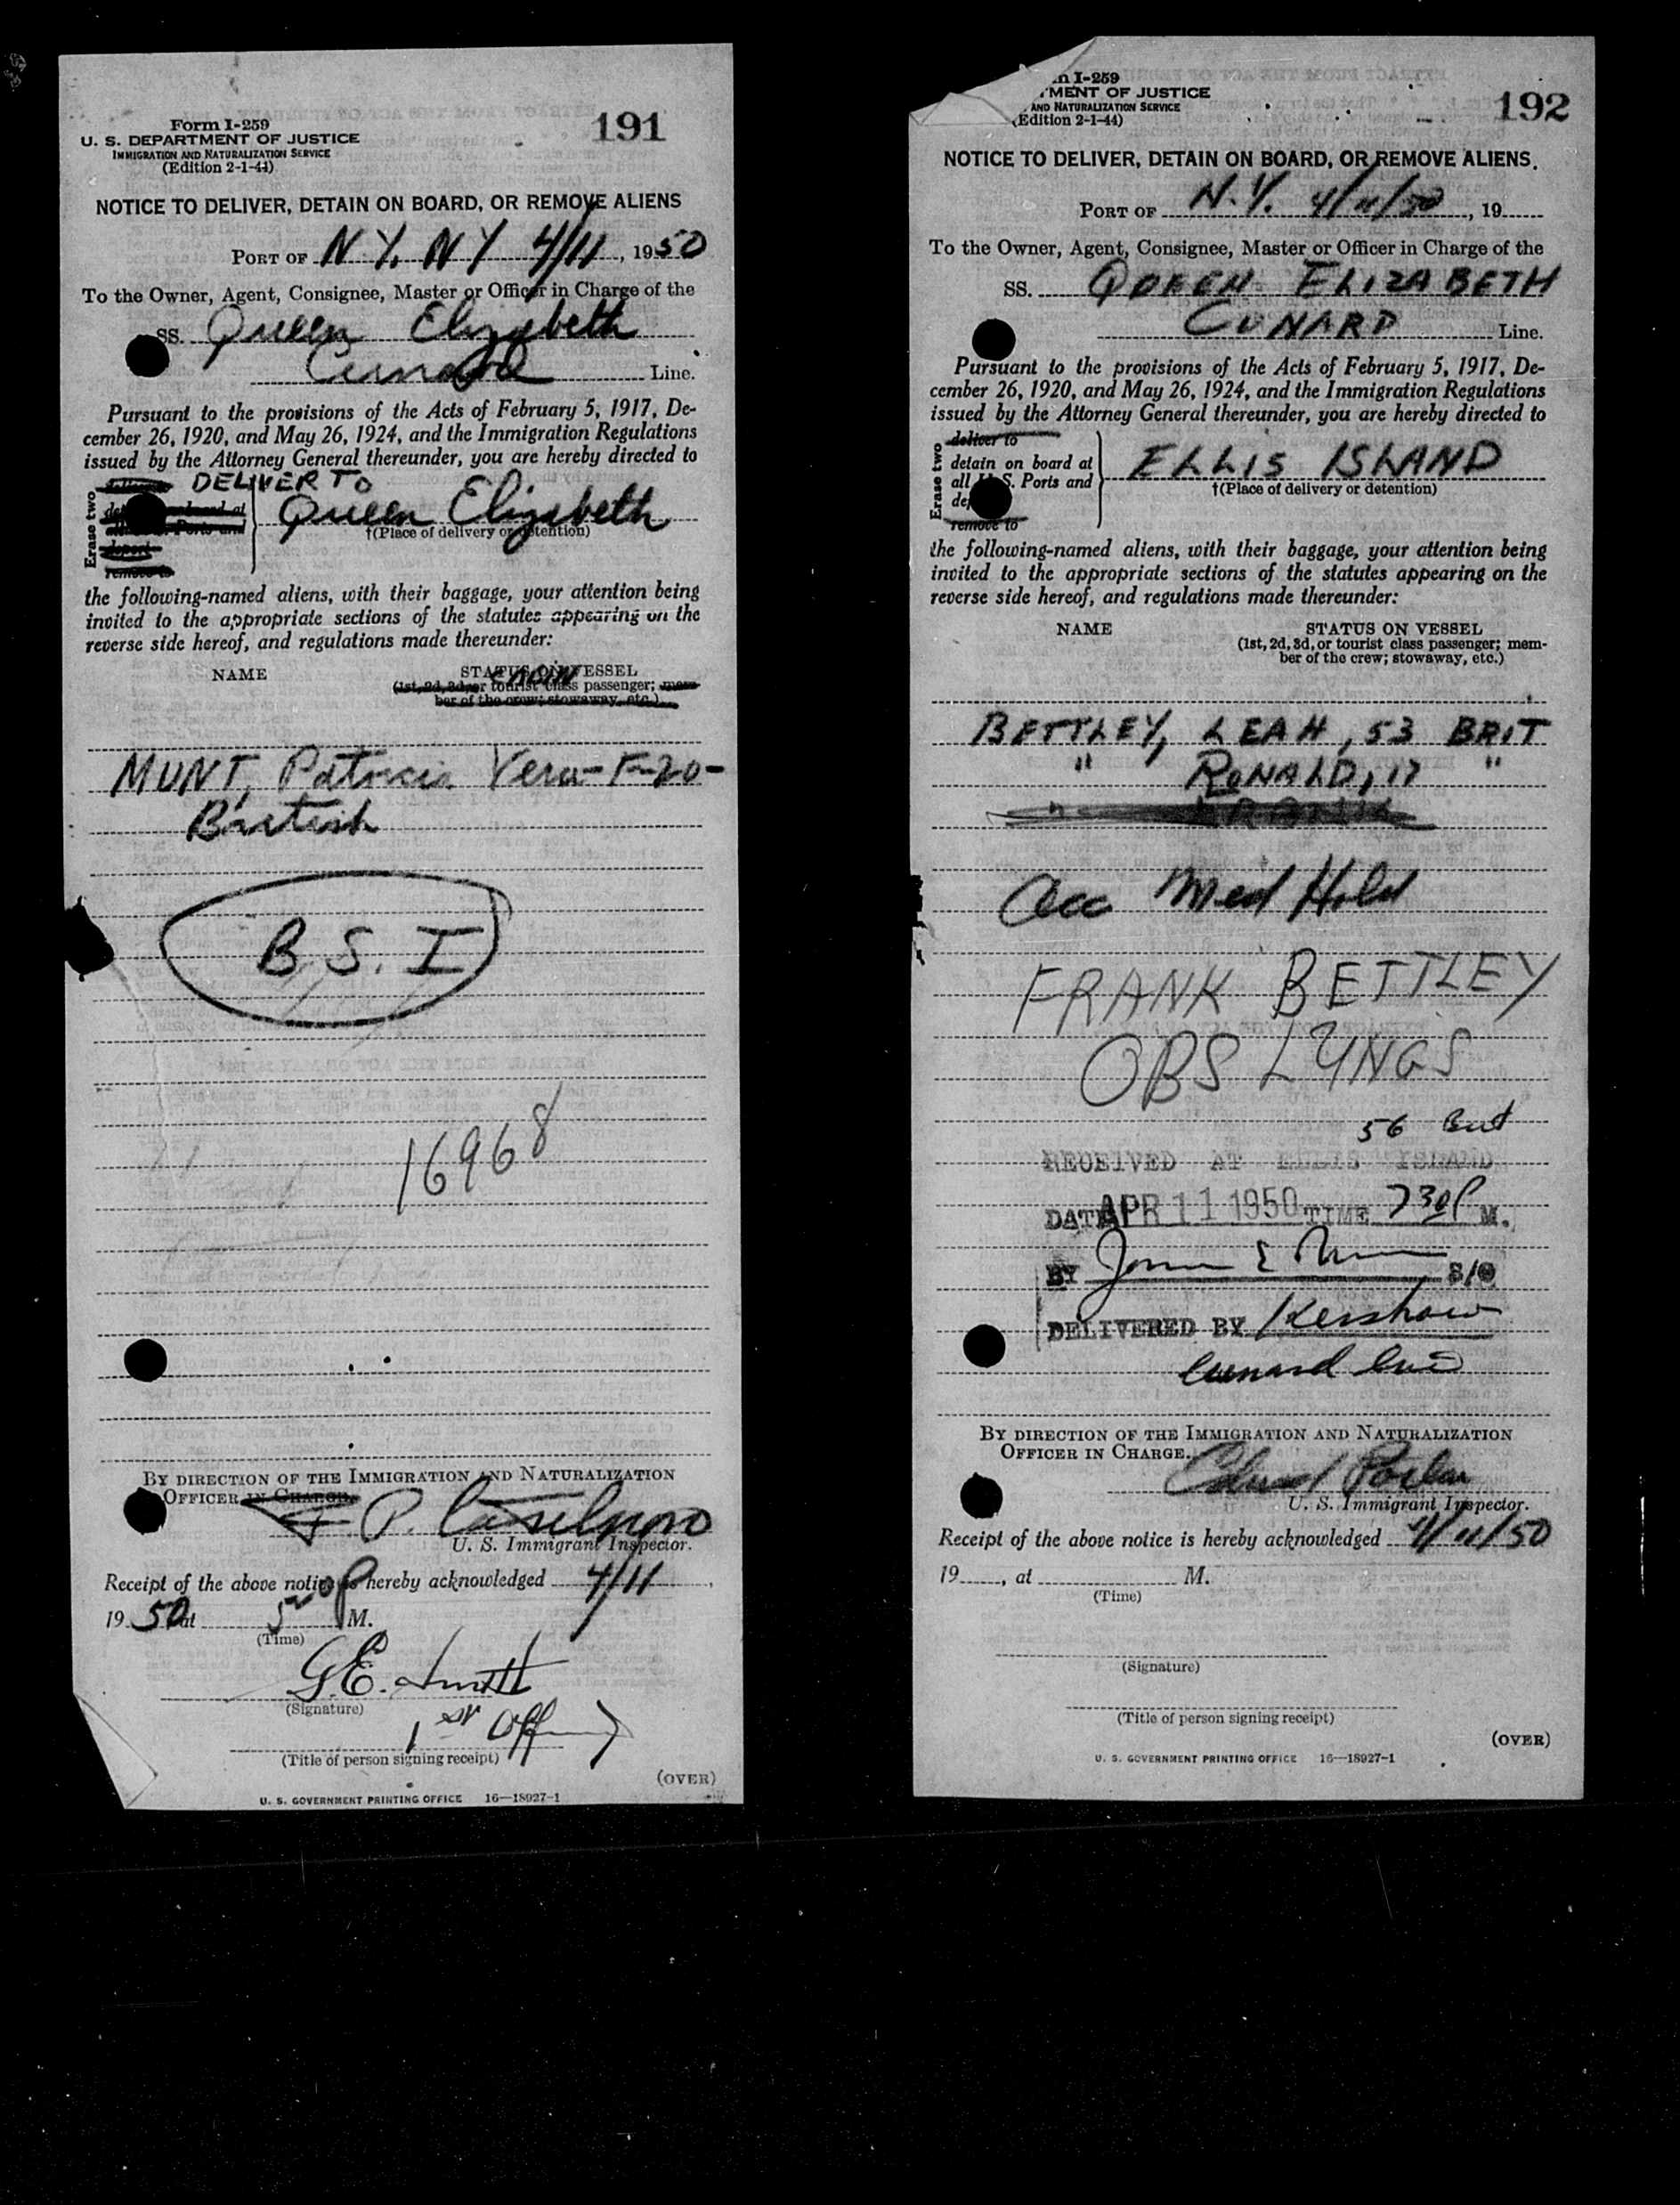 Form I-259
U. S. DEPARTMENT OF JUSTICE
IMMIGRATION AND NATURALIZATION SERVICE
(Edition 2-1-44)
191
NOTICE TO DELIVER, DETAIN ON BOARD, OR REMOVE ALIENS
PORT OF N.Y. NY 4/11, 1950
To the Owner, Agent, Consignee, Master or Officer in Charge of the
SS. Queen Elizabeth
Cunard Line.
Pursuant to the provisions of the Acts of February 5, 1917, De-
cember 26, 1920, and May 26, 1924, and the Immigration Regulations
issued by the Attorney General thereunder, you are hereby directed to
DELIVER TO
Erase two
Queen Elizabeth
†(Place of delivery or detention)
the following-named aliens, with their baggage, your attention being
invited to the appropriate sections of the statutes appearing on the
reverse side hereof, and regulations made thereunder:
NAME STATUS ON VESSEL
(1st, 2d, 3d, or tourist class passenger; mem-
ber of the crew; stowaway, etc.)
MUNT, Patricia Vera-F-20-
British
B.S.I
16968
BY DIRECTION OF THE IMMIGRATION AND NATURALIZATION
OFFICER IN CHARGE.
P.
U. S. Immigrant Inspector.
Receipt of the above notice is hereby acknowledged 4/11,
1950 at 5 00 P M.
(Time)
G.E. Smith
(Signature)
1st Off
(Title of person signing receipt)
(OVER)
U. S. GOVERNMENT PRINTING OFFICE 16—18927-1
m I-259
MENT OF JUSTICE
AND NATURALIZATION SERVICE
(Edition 2-1-44)
192
NOTICE TO DELIVER, DETAIN ON BOARD, OR REMOVE ALIENS.
PORT OF N.Y. 4/11/50, 19
To the Owner, Agent, Consignee, Master or Officer in Charge of the
SS. QUEEN ELIZABETH
CUNARD Line.
Pursuant to the provisions of the Acts of February 5, 1917, De-
cember 26, 1920, and May 26, 1924, and the Immigration Regulations
issued by the Attorney General thereunder, you are hereby directed to
Erase two
deliver to
detain on board at
all U. S. Ports and
remove to
ELLIS ISLAND
†(Place of delivery or detention)
the following-named aliens, with their baggage, your attention being
invited to the appropriate sections of the statutes appearing on the
reverse side hereof, and regulations made thereunder:
NAME STATUS ON VESSEL
(1st, 2d, 3d, or tourist class passenger; mem-
ber of the crew; stowaway, etc.)
BETTLEY, LEAH, 53 BRIT
" RONALD, 17 "
Acc Med Hold
FRANK BETTLEY
OBS LUNGS
56 Brit
RECEIVED AT ELLIS ISLAND
DATE APR 11 1950 TIME 730P M.
BY
DELIVERED BY Kershaw
Cunard Line
BY DIRECTION OF THE IMMIGRATION AND NATURALIZATION
OFFICER IN CHARGE.
U. S. Immigrant Inspector.
Receipt of the above notice is hereby acknowledged 4/11/50
19, at M.
(Time)
(Signature)
(Title of person signing receipt)
(OVER)
U. S. GOVERNMENT PRINTING OFFICE 16—18927-1